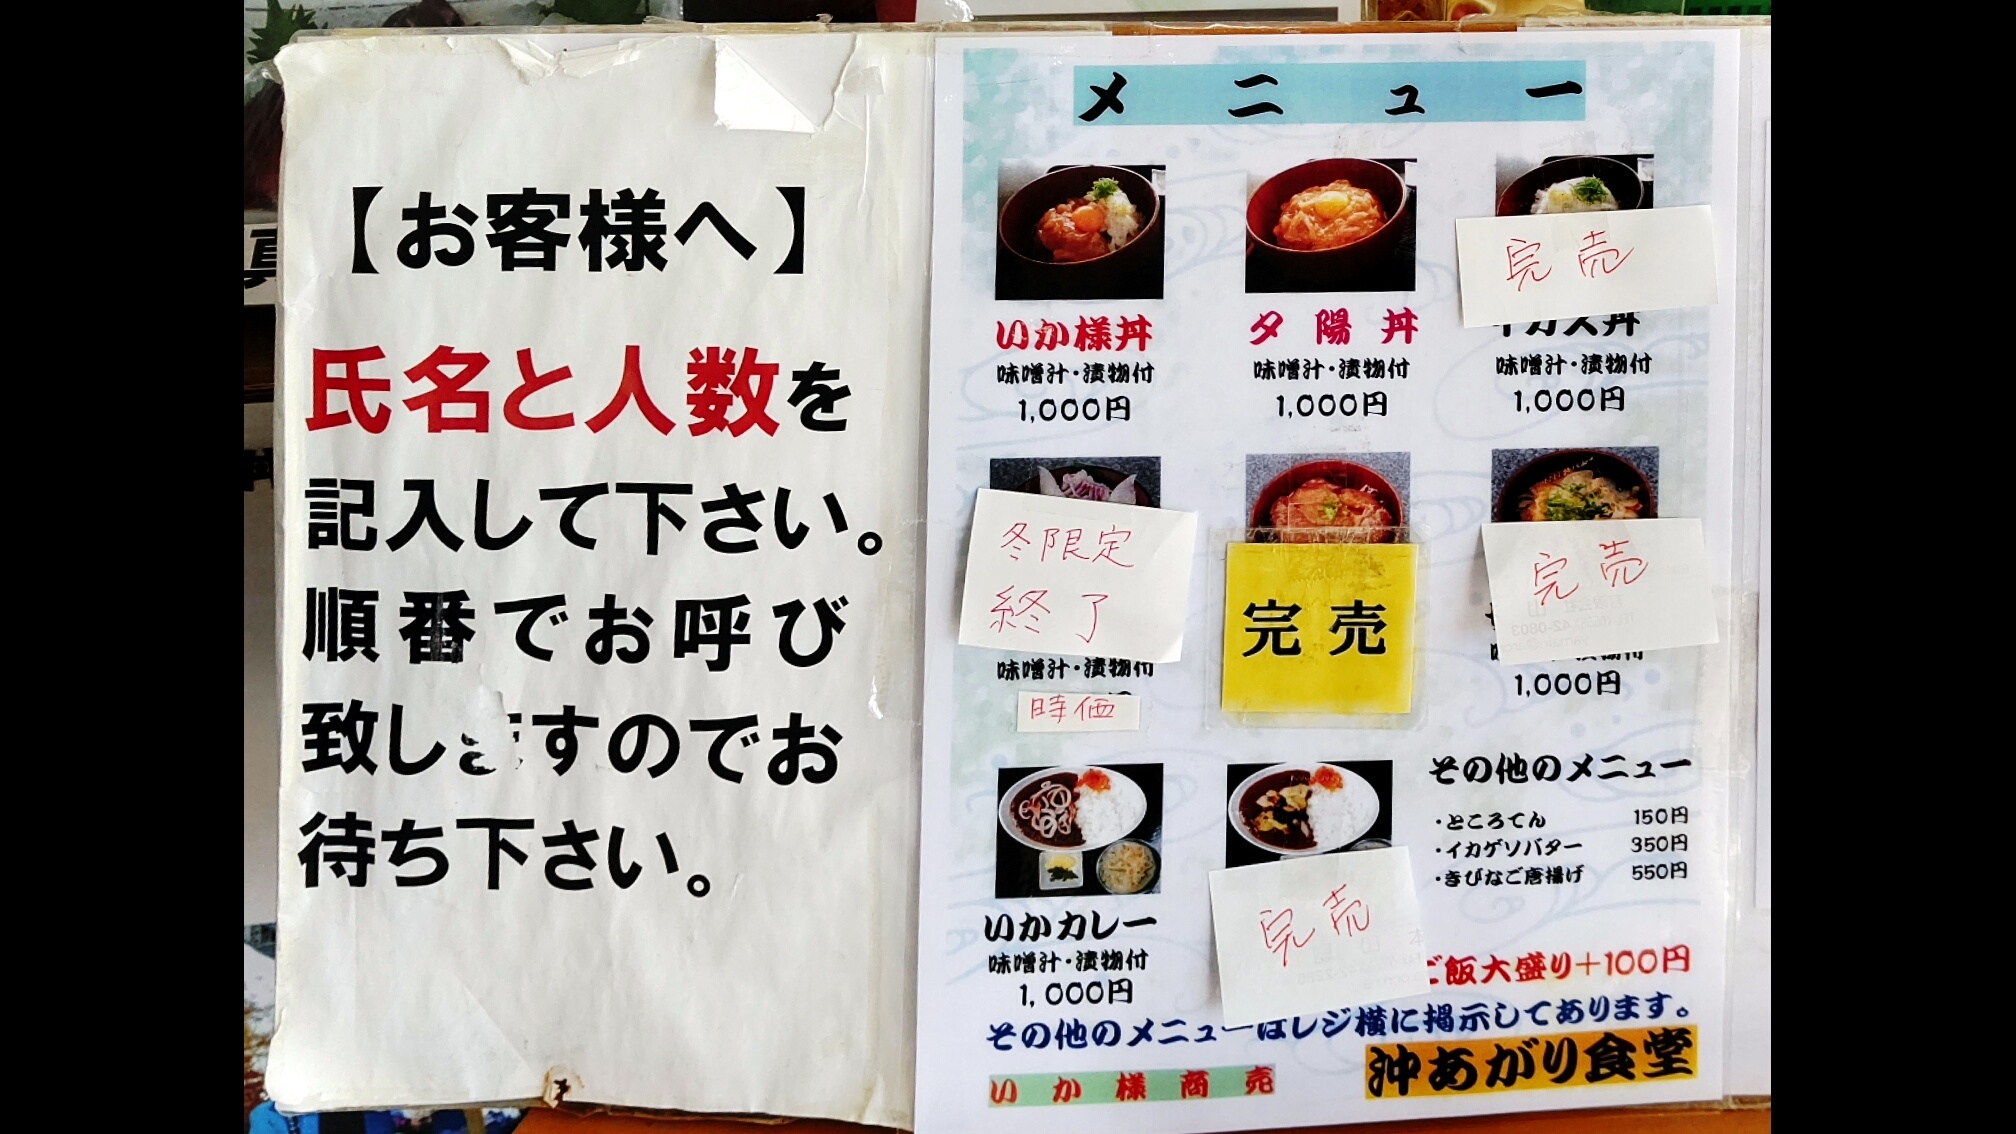 【お客様へ】
氏名と人数を
記入して下さい。
順番でお呼び
致しますのでお
待ち下さい。
メニュー
いか様丼
味噌汁・漬物付
1,000円
夕陽丼
味噌汁・漬物付
1,000円
完売
味噌汁・漬物付
1,000円
冬限定
終了
味噌汁・漬物付
時価
完売
完売
1,000円
いかカレー
味噌汁・漬物付
1,000円
完売
その他のメニュー
・ところてん 150円
・イカゲソバター 350円
・きびなご唐揚げ 550円
ご飯大盛り+100円
その他のメニューはレジ横に掲示してあります。
いか様商売
沖あがり食堂